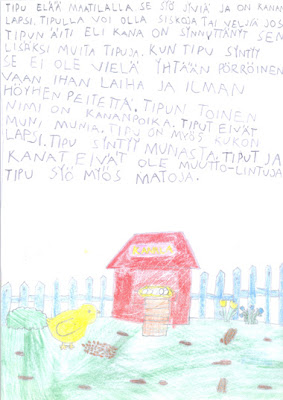 TIPU ELÄÄ MAATILALLA. SE SYÖ JYVIÄ JA ON KANAN
LAPSI. TIPULLA VOI OLLA SISKOJA TAI VELJIÄ JOS
TIPUN ÄITI ELI KANA ON SYNNYTTÄNYT SEN
LISÄKSI MUITA TIPUJA. KUN TIPU SYNTYY
SE EI OLE VIELÄ YHTÄÄN PÖRRÖINEN
VAAN IHAN LAIHA JA ILMAN
HÖYHEN PEITETTÄ. TIPUN TOINEN
NIMI ON KANANPOIKA. TIPUT EIVÄT
MUNI MUNIA. TIPU ON MYÖS KUKON
LAPSI. TIPU SYNTYY MUNASTA. TIPUT JA
KANAT EIVÄT OLE MUUTTO-LINTUJA
TIPU SYÖ MYÖS MATOJA.